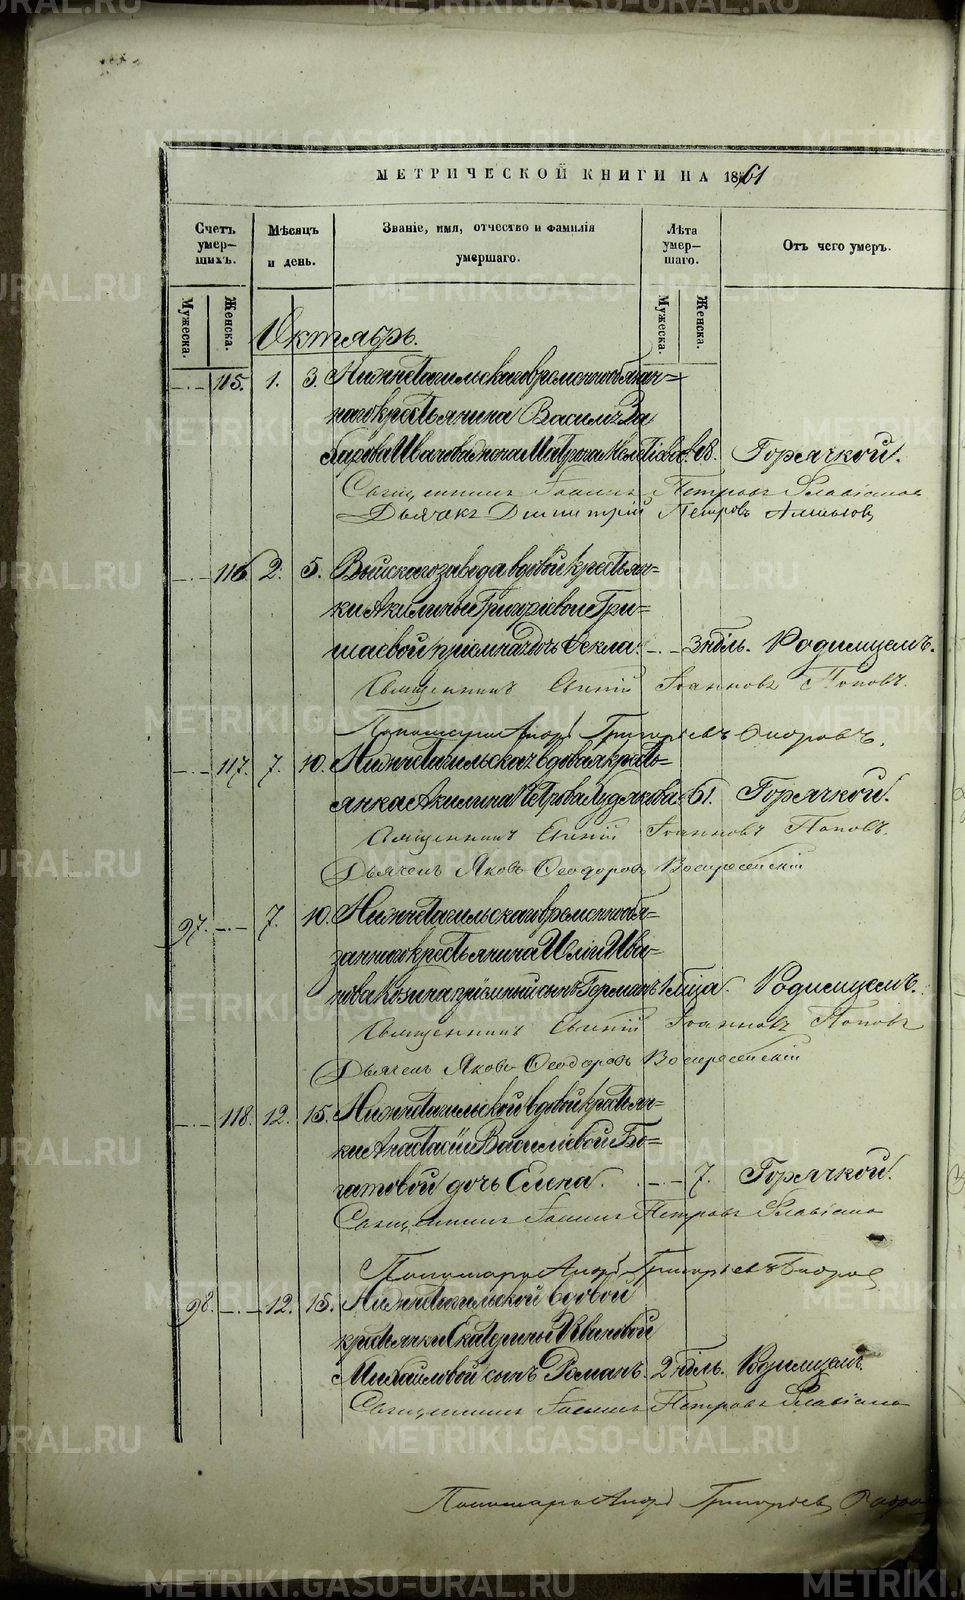 МЕТРИЧЕСКОЙ КНИГИ НА 1861
Счетъ умер-
шихъ.
Мужеска.
Женска.
Мѣсяцъ
и день.
Званіе, имя, отчество и фамилія
умершаго.
Лѣта
умер-
шаго.
Мужеска.
Женска.
Отъ чего умеръ.
Октябрь.
115. 1. 3. Нижнетагильскаго временнообязан=
наго крестьянина Василья За
Иванова жена Матрона 68. Горячкой.
Священникъ Іоаннъ Петровъ
Дьячекъ Димитрій Петровъ
116. 2. 5. Выйскаго завода вдовой крестьян=
ки Акилины Григорьевой Гри=
шаевой пріемная дочь Фекла. 3 нѣдль. Родимцемъ.
Священникъ Евгеній Іоанновъ Поповъ.
Пономарь Андрей Григорьевъ
117. 7. 10. Нижнетагильская вдовая кресть=
янка Акилина Петрова 61. Горячкой.
Священникъ Евгеній Іоанновъ Поповъ.
Дьячекъ Яковъ Ѳеодоровъ Воскресенскій
97. 7. 10. Нижнетагильскаго временнообя=
заннаго крестьянина Иліи Ива=
нова пріемный сынъ Германъ 1 мѣсца. Родимцемъ.
Священникъ Евгеній Іоанновъ Поповъ
Дьячекъ Яковъ Ѳеодоровъ Воскресенскій
118. 12. 15. Нижнетагильской вдовой крестьян=
ки Анастасіи Василіевой Бо=
гатовой дочь Елена. 7. Горячкой.
Священникъ Іоаннъ Петровъ
Пономарь Андрей Григорьевъ
98. 12. 15. Нижнетагильской вдовой
крестьянки Екатерины Ивановой
Михайловой сынъ Романъ. 2 нѣдль. Родимцемъ.
Священникъ Іоаннъ Петровъ
Пономарь Андрей Григорьевъ
METRIKI.GASO-URAL.RU